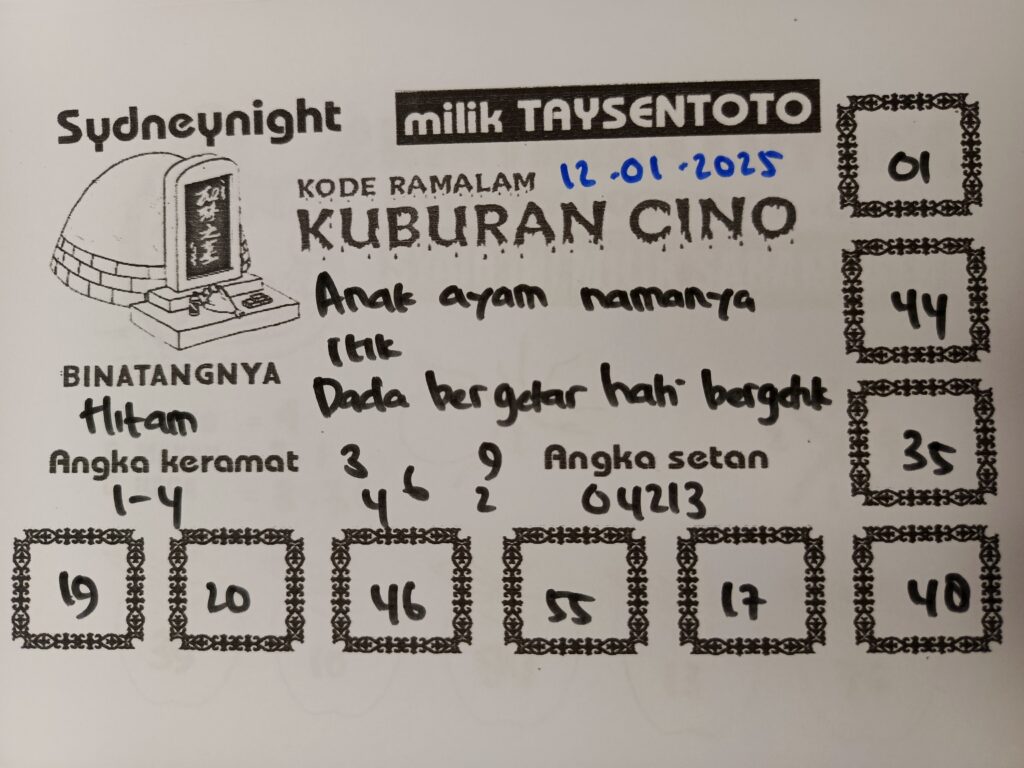 Sydneynight
milik TAYSENTOTO
KODE RAMALAM 12-01-2025
KUBURAN CINO
Anak ayam namanya
itik
Dada bergetar hati bergetik
BINATANGNYA
Hitam
Angka keramat
1-4
3 9
4 6 2
Angka setan
04213
01
44
35
19 20 46 55 17 40